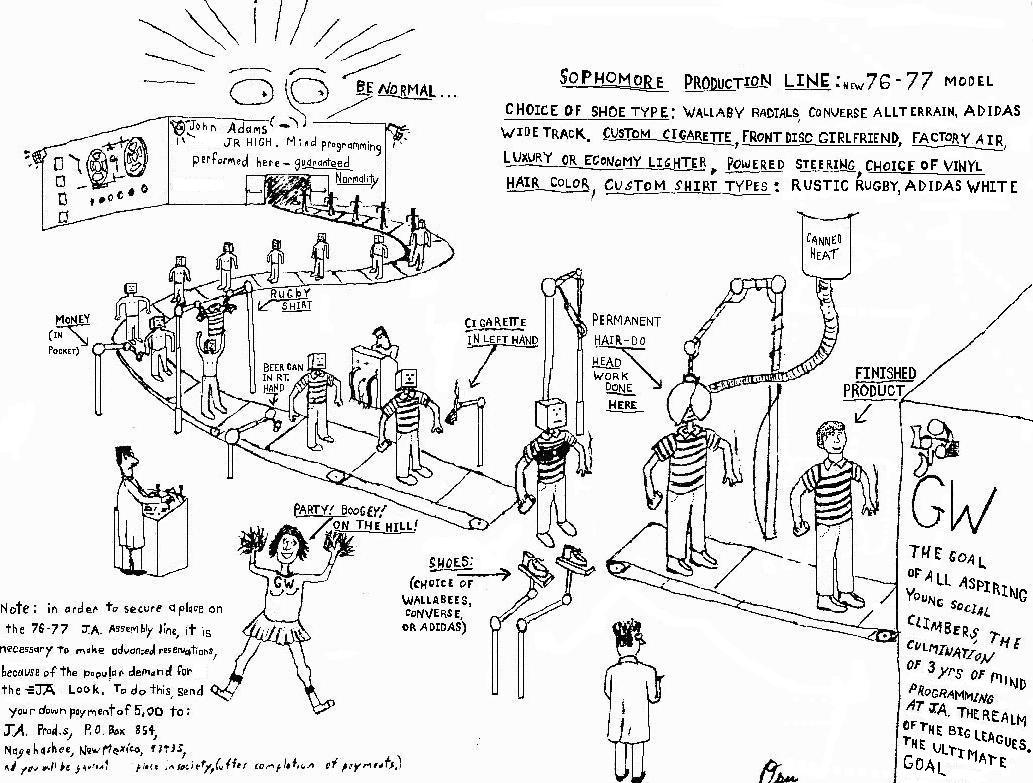 SOPHOMORE PRODUCTION LINE: NEW 76-77 MODEL
CHOICE OF SHOE TYPE: WALLABY RADIALS, CONVERSE ALLTERRAIN, ADIDAS
WIDE TRACK. CUSTOM CIGARETTE, FRONT DISC GIRLFRIEND, FACTORY AIR,
LUXURY OR ECONOMY LIGHTER, POWERED STEERING, CHOICE OF VINYL
HAIR COLOR, CUSTOM SHIRT TYPES: RUSTIC RUGBY, ADIDAS WHITE
BE NORMAL...
John Adams
JR HIGH. Mind programming
performed here - guaranteed
Normality
CANNED
HEAT
RUGBY
SHIRT
MONEY
(IN
POCKET)
CIGARETTE
IN LEFT HAND
BEER CAN
IN RT.
HAND
PERMANENT
HAIR-DO
HEAD
WORK
DONE
HERE
FINISHED
PRODUCT
PARTY! BOOGEY!
ON THE HILL!
GW
SHOES:
(CHOICE OF
WALLABEES,
CONVERSE,
OR ADIDAS)
GW
THE GOAL
OF ALL ASPIRING
YOUNG SOCIAL
CLIMBERS, THE
CULMINATION
OF 3 YRS OF MIND
PROGRAMMING
AT J.A. THE REALM
OF THE BIG LEAGUES.
THE ULTIMATE
GOAL
Note: in order to secure a place on
the 76-77 J.A. Assembly line, it is
necessary to make advanced reservations,
because of the popular demand for
the JA Look. To do this, send
your down payment of 5,00 to:
J.A. Prod.s, P.O. Box 854,
Nagahashee, New Mexico,
you will be place in society, (after completion of payments.)